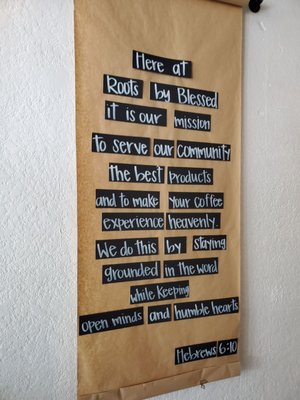 Here at
Roots by Blessed
it is our mission
to serve our community
the best products
and to make your coffee
experience heavenly.
We do this by staying
grounded in the word
while keeping
open minds and humble hearts
Hebrews 6:10